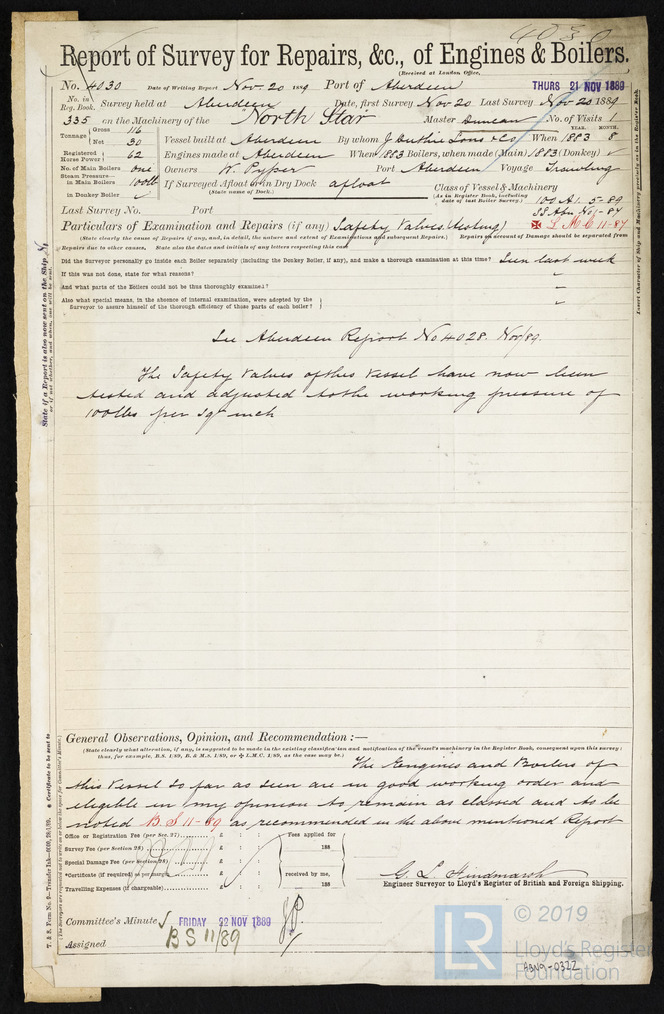 4030
Report of Survey for Repairs, &c., of Engines & Boilers.
(Received at London Office,
No. 4030 Date of Writing Report Nov. 20 1889 Port of Aberdeen THURS 21 NOV 1889
No. in Reg. Book. Survey held at Aberdeen Date, first Survey Nov 20 Last Survey Nov 20 1889
335 on the Machinery of the "North Star Master Duncan No. of Visits 1
Tonnage Gross 116 Net 30 Vessel built at Aberdeen By whom J Duthie Sons & Co When YEAR. 1883 MONTH. 8
Registered Horse Power 62 Engines made at Aberdeen When 1883 Boilers, when made (Main) 1883 (Donkey) ✓
No. of Main Boilers one Owners W. Pyper Port Aberdeen Voyage Trawling
Steam Pressure— in Main Boilers 100lb If Surveyed Afloat or in Dry Dock afloat
(State name of Dock.)
in Donkey Boiler ✓
Class of Vessel & Machinery
(As in Register Book, including date of last Boiler Survey.)
100 A1. 5-89
SS Abn No1-87
LMC 11-87
Last Survey No. Port
Particulars of Examination and Repairs (if any) Safety Valves (testing)
(State clearly the cause of Repairs if any, and, in detail, the nature and extent of Examinations and subsequent Repairs.) Repairs on account of Damage should be separated from
Repairs due to other causes. State also the dates and initials of any letters respecting this case
Did the Surveyor personally go inside each Boiler separately (including the Donkey Boiler, if any), and make a thorough examination at this time? Seen last week
If this was not done, state for what reasons?
And what parts of the Boilers could not be thoroughly examined?
Also what special means, in the absence of internal examination, were adopted by the
Surveyor to assure himself of the thorough efficiency of those parts of each boiler?
See Aberdeen Report No 4028. Nov/89.
The Safety Valves of this Vessel have now been
tested and adjusted to the working pressure of
100lbs per sq inch
General Observations, Opinion, and Recommendation :—
(State clearly what alteration, if any, is suggested to be made in the existing classification and notification of the vessel's machinery in the Register Book, consequent upon this survey;
thus, for example, B.S. 1/89, B. & M.s. 1/89, or L.M.C. 1/89, as the case may be.)
The Engines and Boilers of
this Vessel so far as seen are in good working order and
eligible in my opinion to remain as classed and to be
noted B S 11-89 as recommended in the above mentioned Report
Office or Registration Fee (per Sec. 27) £ : : Fees applied for
Survey Fee (per Section 28) £ : : 188
Special Damage Fee (per Section 28) £ : :
*Certificate (if required) as per margin £ : : received by me,
Travelling Expenses (if chargeable) £ : : 188
G. L. Hindmarsh
Engineer Surveyor to Lloyd's Register of British and Foreign Shipping.
Committee's Minute FRIDAY 22 NOV 1889
Assigned BS 11/89
State if a Report is also now sent on the Ship
or if not whether, and when, one will be sent.
LR
© 2019
Lloyd's Register
Foundation
ABN9-0322